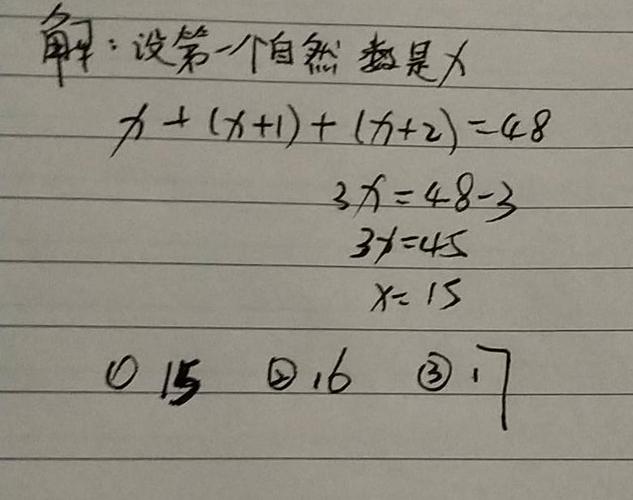 解：设第一个自然数是x
x+(x+1)+(x+2)=48
3x=48-3
3x=45
x=15
① 15 ② 16 ③ 17